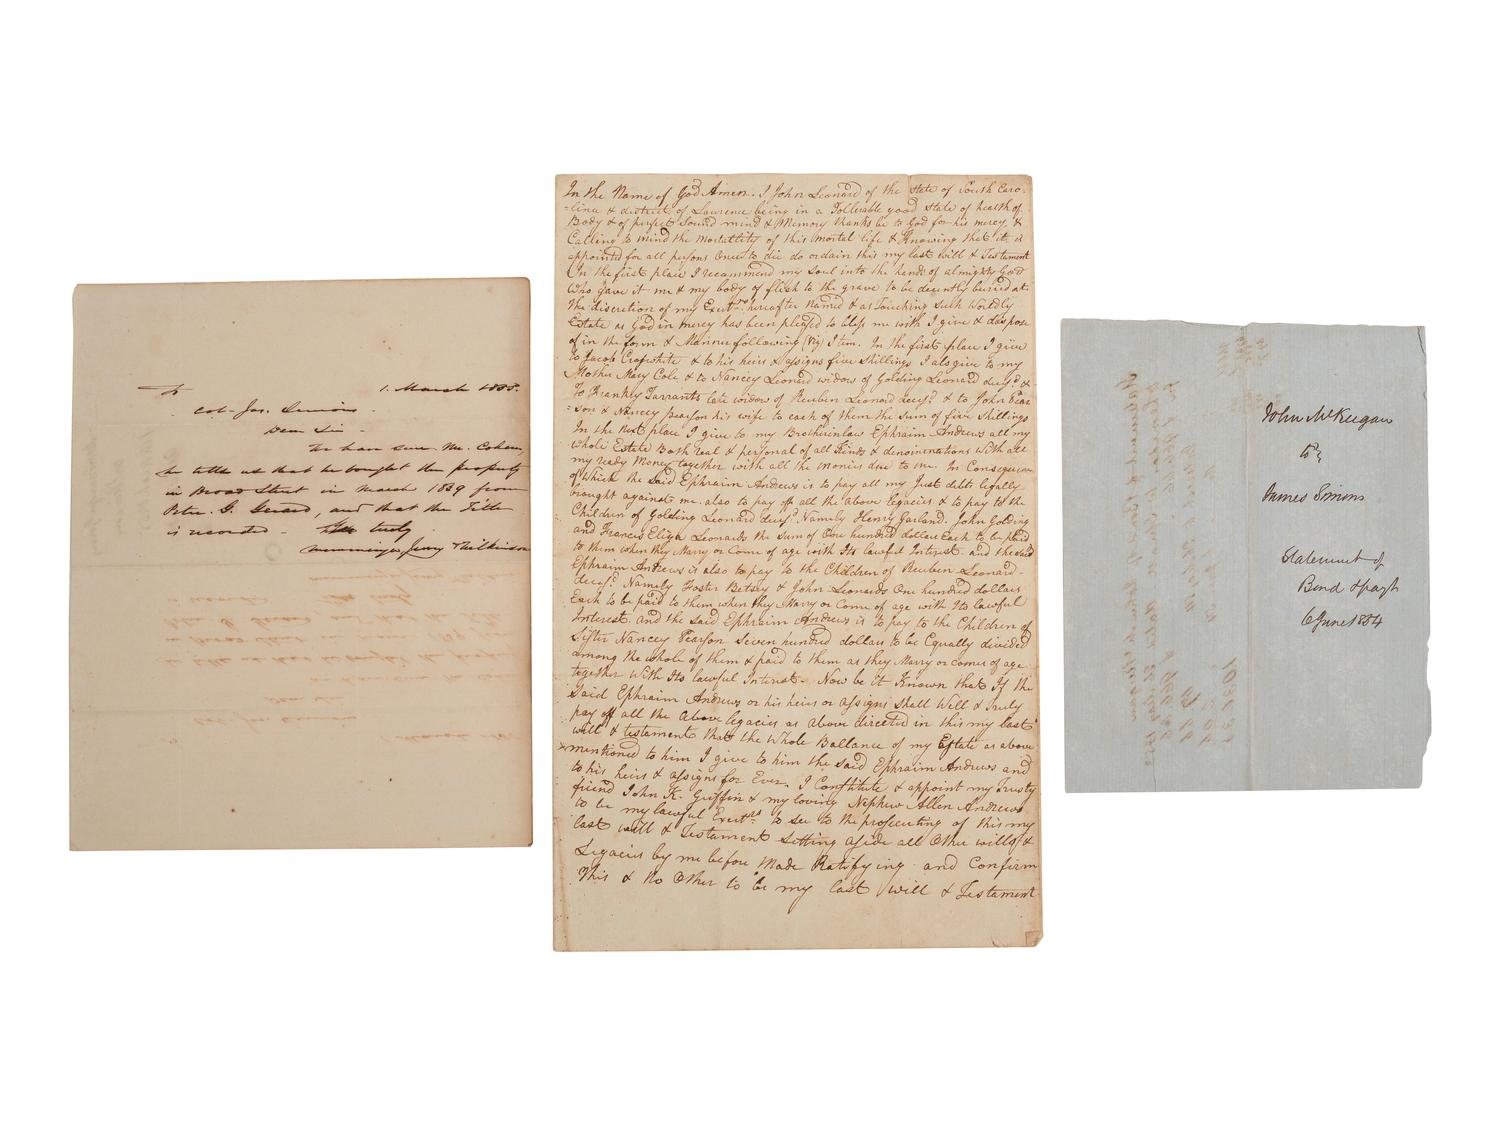 To
1. March 1855.
Col. Jas. Simons.
Dear Sir
We have seen Mr. Cohen,
he tells us that he bought the property
in Broad Street in March 1839 from
Peter. G. Gerard, and that the Title
is recorded. Yrs truly
Memminger, Jervey & Wilkinson
In the Name of God Amen. I John Leonard of the State of South Caro-
-lina & district of Laurence being in a Tollerable good State of health of
Body & of perfect Sound mind & Memory thanks be to God for his mercy, &
Calling to mind the Mortallity of this mortal life & Knowing that it is
appointed for all persons Once to die do ordain this my last will & Testament
In the first place I recommend my Soul into the hands of almighty God
Who gave it me & my body of flesh to the grave to be decently buried at
the discretion of my Exectrs. hereafter Named & as Touching such Worldly
Estate as God in mercy has been pleased to bless me with I give & dispose
of in the form & Manner following (Viz) Item. In the first place I give
to Jacob Crosswhite & to his heirs & assigns five Shillings I also give to my
Mother Mary Cole, & to Nancey Leonard widow of Golding Leonard decsd. &
To Frankey Tarrants late widow of Reuben Leonard decsd. & to John Pear
=son & Nancey Pearson his wife to each of them the Sum of five Shillings
In the next place I give to my Brotherinlaw Ephraim Andrews all my
whole Estate Both real & personal of all Kinds & denominations With all
my ready Money together with all the monies due to me. In Consequence
of Which the Said Ephraim Andrews is to pay all my Just debts legally
brought against me. also to pay off all the above legacies & to pay to the
Children of Golding Leonard decsd. Namely Henry Garland. John Golding
and Francis Eliza Leonards the Sum of One hundred dollars Each to be paid
to them when they Marry or Come of age with Its lawful Interest. and the said
Ephraim Andrews is also to pay to the Children of Reuben Leonard.
decsd. Namely Foster Betsey & John Leonards One hundred dollars
Each to be paid to them when they Marry or Come of age with Its lawful
Interest. and the Said Ephraim Andrews is to pay to the Children of
Sister Nancey Pearson Seven hundred dollars to be Equally divided
among the whole of them & paid to them as they Marry or comes of age
together With Its lawful Interest. Now be it Known that If the
Said Ephraim Andrews or his heirs or assigns Shall Well & truly
pay off all the Above legacies as above directed in this my last
will & testament that the Whole Ballance of my Estate as above
mentioned to him I give to him the Said Ephraim Andrews and
to his heirs & assigns for Ever. I Constitute & appoint my Trusty
friend John K. Griffin & my loving Nephew Allen Andrews
to be my lawful Exectrs to see to the prosecuting of this my
last will & Testament Setting aside all Other wills &
Legacies by me before Made Ratifying and Confirm
This & No Other to be my last will & Testament
John McKeegan
to
James Simons
Statement of
Bond & Mortg
6 June 1854